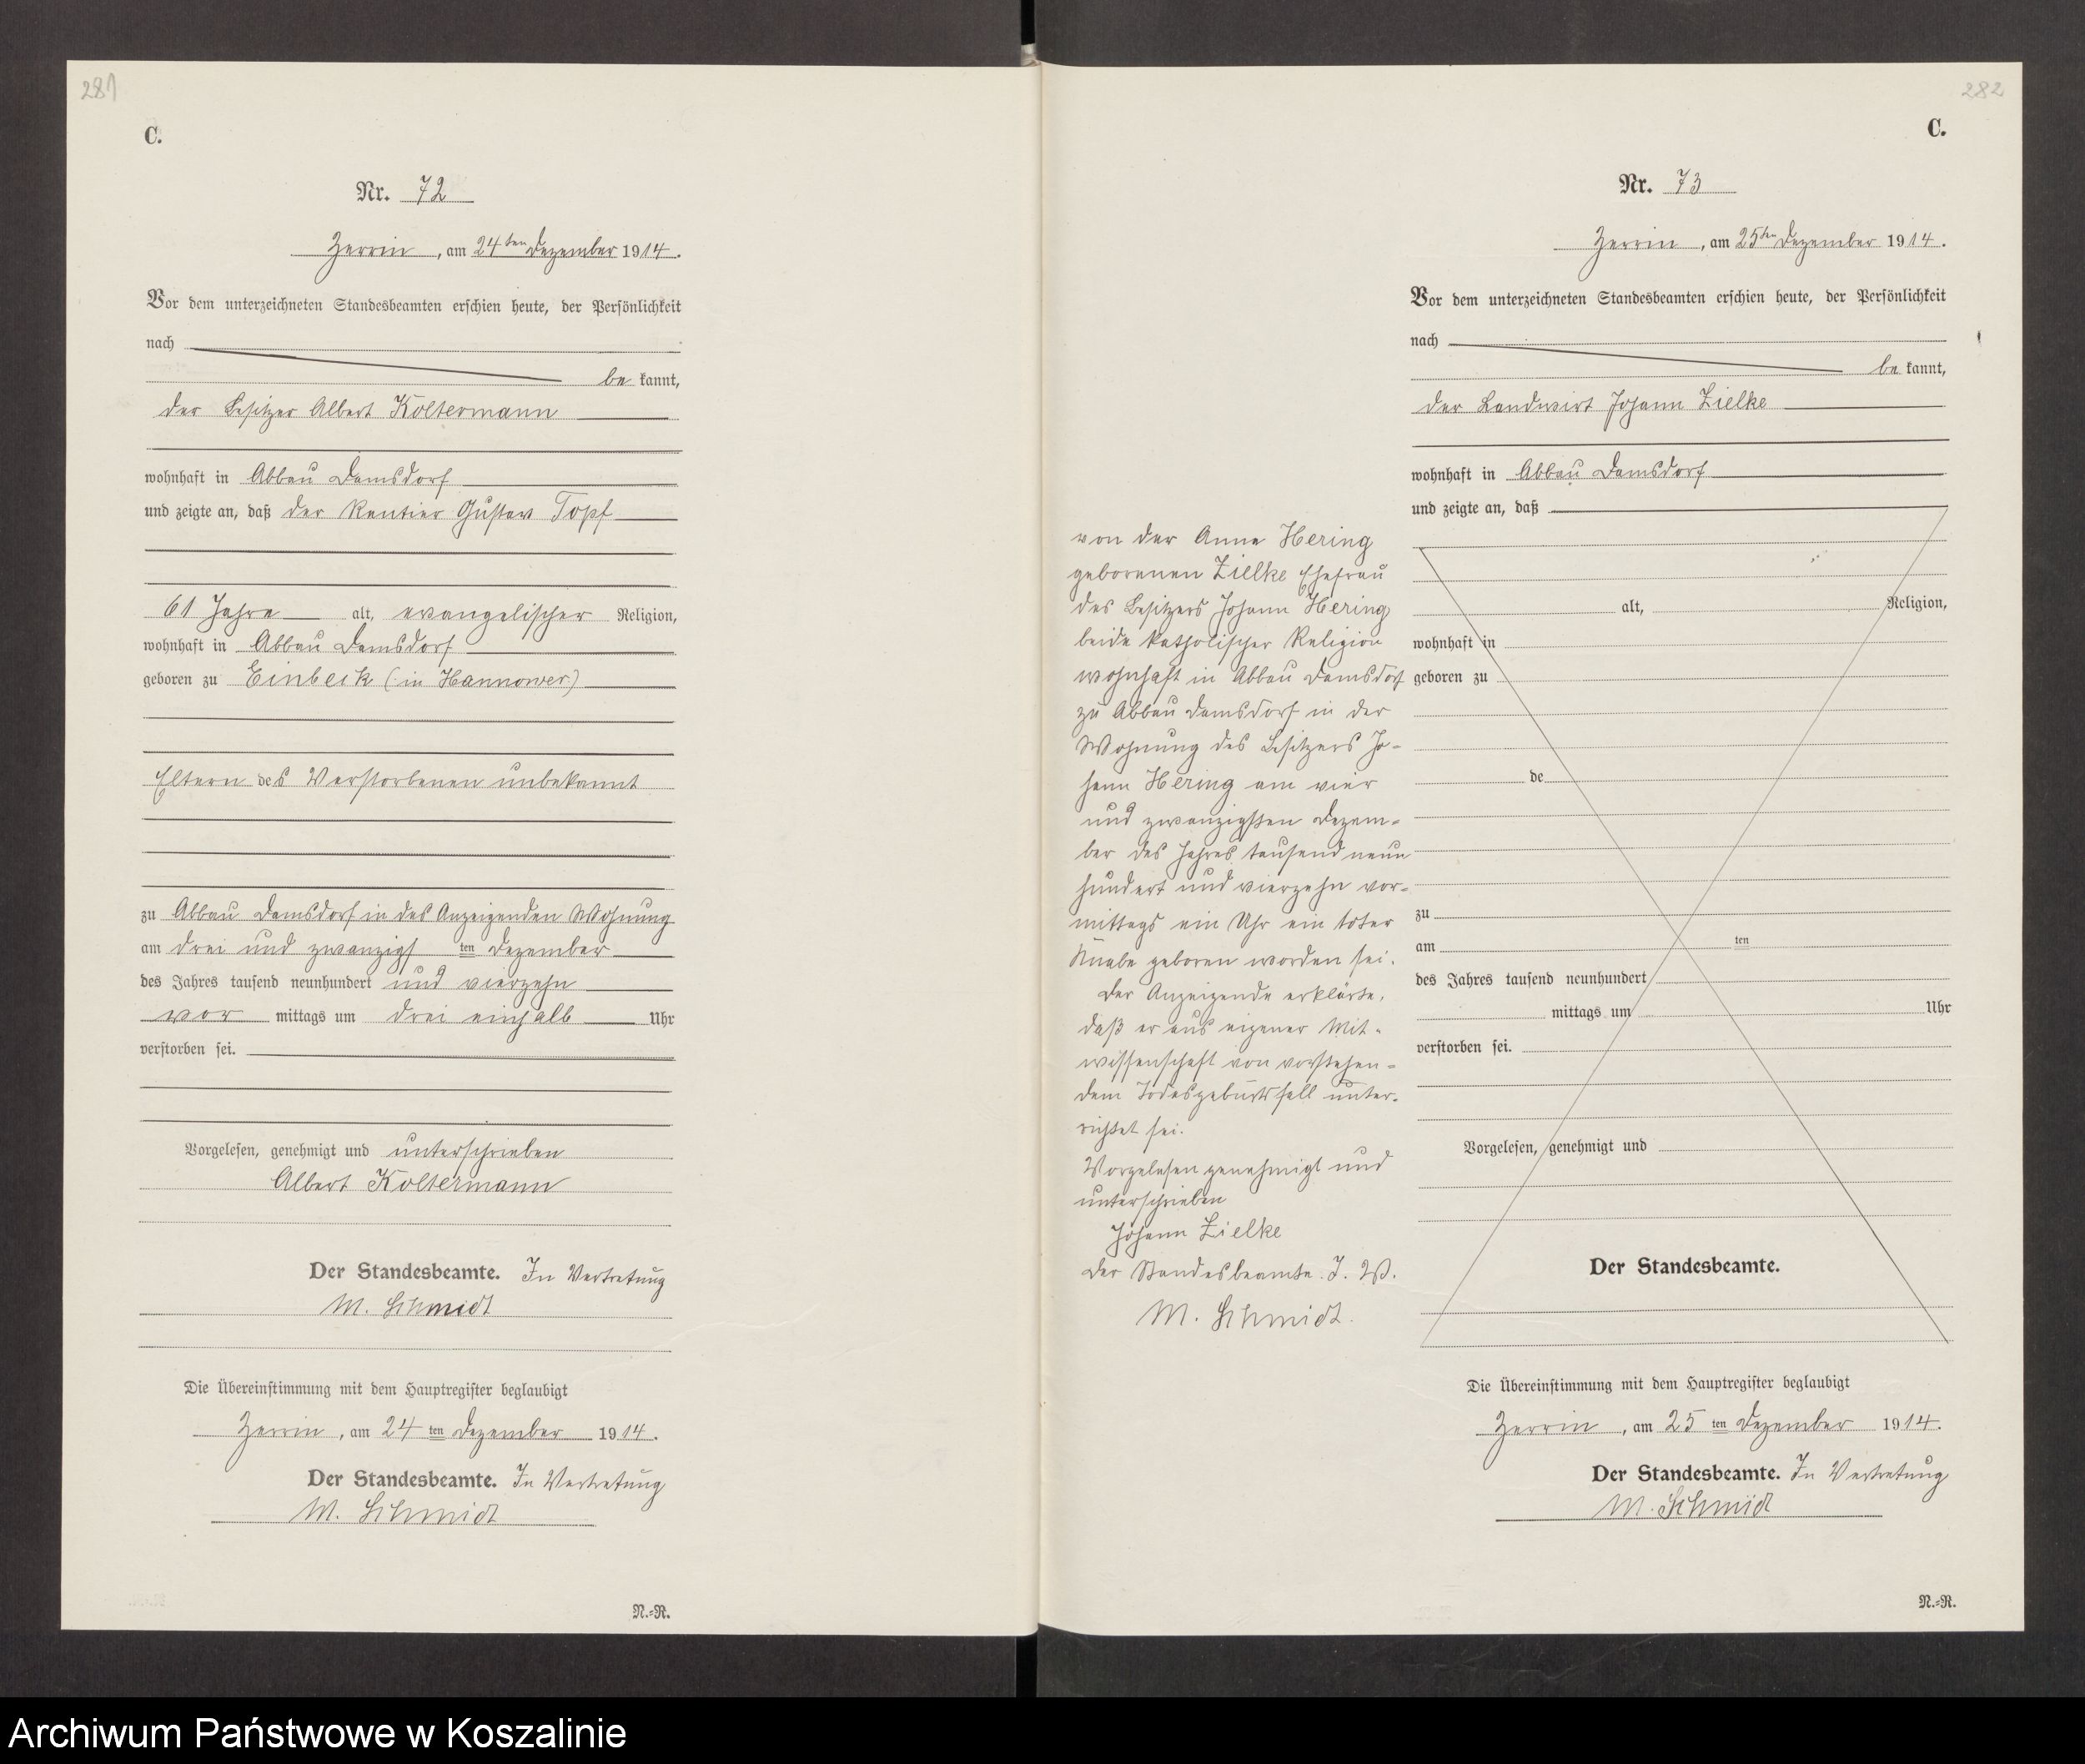 281
C.
Nr. 72
Zerrin, am 24ten Dezember 1914.
Vor dem unterzeichneten Standesbeamten erschien heute, der Persönlichkeit
nach
be kannt,
der Besitzer Albert Koltermann
wohnhaft in Abbau Damsdorf
und zeigte an, daß der Rentier Gustav Topf
61 Jahre alt, evangelischer Religion,
wohnhaft in Abbau Damsdorf
geboren zu Einbeck (: in Hannower)
Eltern des Verstorbenen unbekannt
zu Abbau Damsdorf in des Anzeigenden Wohnung
am drei und zwanzigsten Dezember
des Jahres tausend neunhundert und vierzehn
vor mittags um drei einhalb Uhr
verstorben sei.
Vorgelesen, genehmigt und unterschrieben
Albert Koltermann
Der Standesbeamte. In Vertretung
M. Schmidt
Die Übereinstimmung mit dem Hauptregister beglaubigt
Zerrin, am 24ten Dezember 1914.
Der Standesbeamte. In Vertretung
M. Schmidt
N.-R.
282
C.
Nr. 73
Zerrin, am 25ten Dezember 1914.
Vor dem unterzeichneten Standesbeamten erschien heute, der Persönlichkeit
nach
be kannt,
der Landwirt Johann Zielke
wohnhaft in Abbau Damsdorf
und zeigte an, daß
von der Anna Hering
geborenen Zielke Ehefrau
des Besitzers Johann Hering
beide katholischer Religion
wohnhaft in Abbau Damsdorf
zu Abbau Damsdorf in der
Wohnung des Besitzers Jo-
hann Hering am vier
und zwanzigsten Dezem-
ber des Jahres tausend neun
hundert und vierzehn vor-
mittags ein Uhr ein toter
Knabe geboren worden sei.
Der Anzeigende erklärte,
daß er aus eigener Mit-
wissenschaft von vorstehen-
dem Todesgeburtsfall unter-
richtet sei.
Vorgelesen genehmigt und
unterschrieben
Johann Zielke
Der Standesbeamte. J. V.
M. Schmidt.
alt, Religion,
wohnhaft in
geboren zu
de
zu
am ten
des Jahres tausend neunhundert
mittags um Uhr
verstorben sei.
Vorgelesen, genehmigt und
Der Standesbeamte.
Die Übereinstimmung mit dem Hauptregister beglaubigt
Zerrin, am 25ten Dezember 1914.
Der Standesbeamte. In Vertretung
M. Schmidt
N.-R.
Archiwum Państwowe w Koszalinie